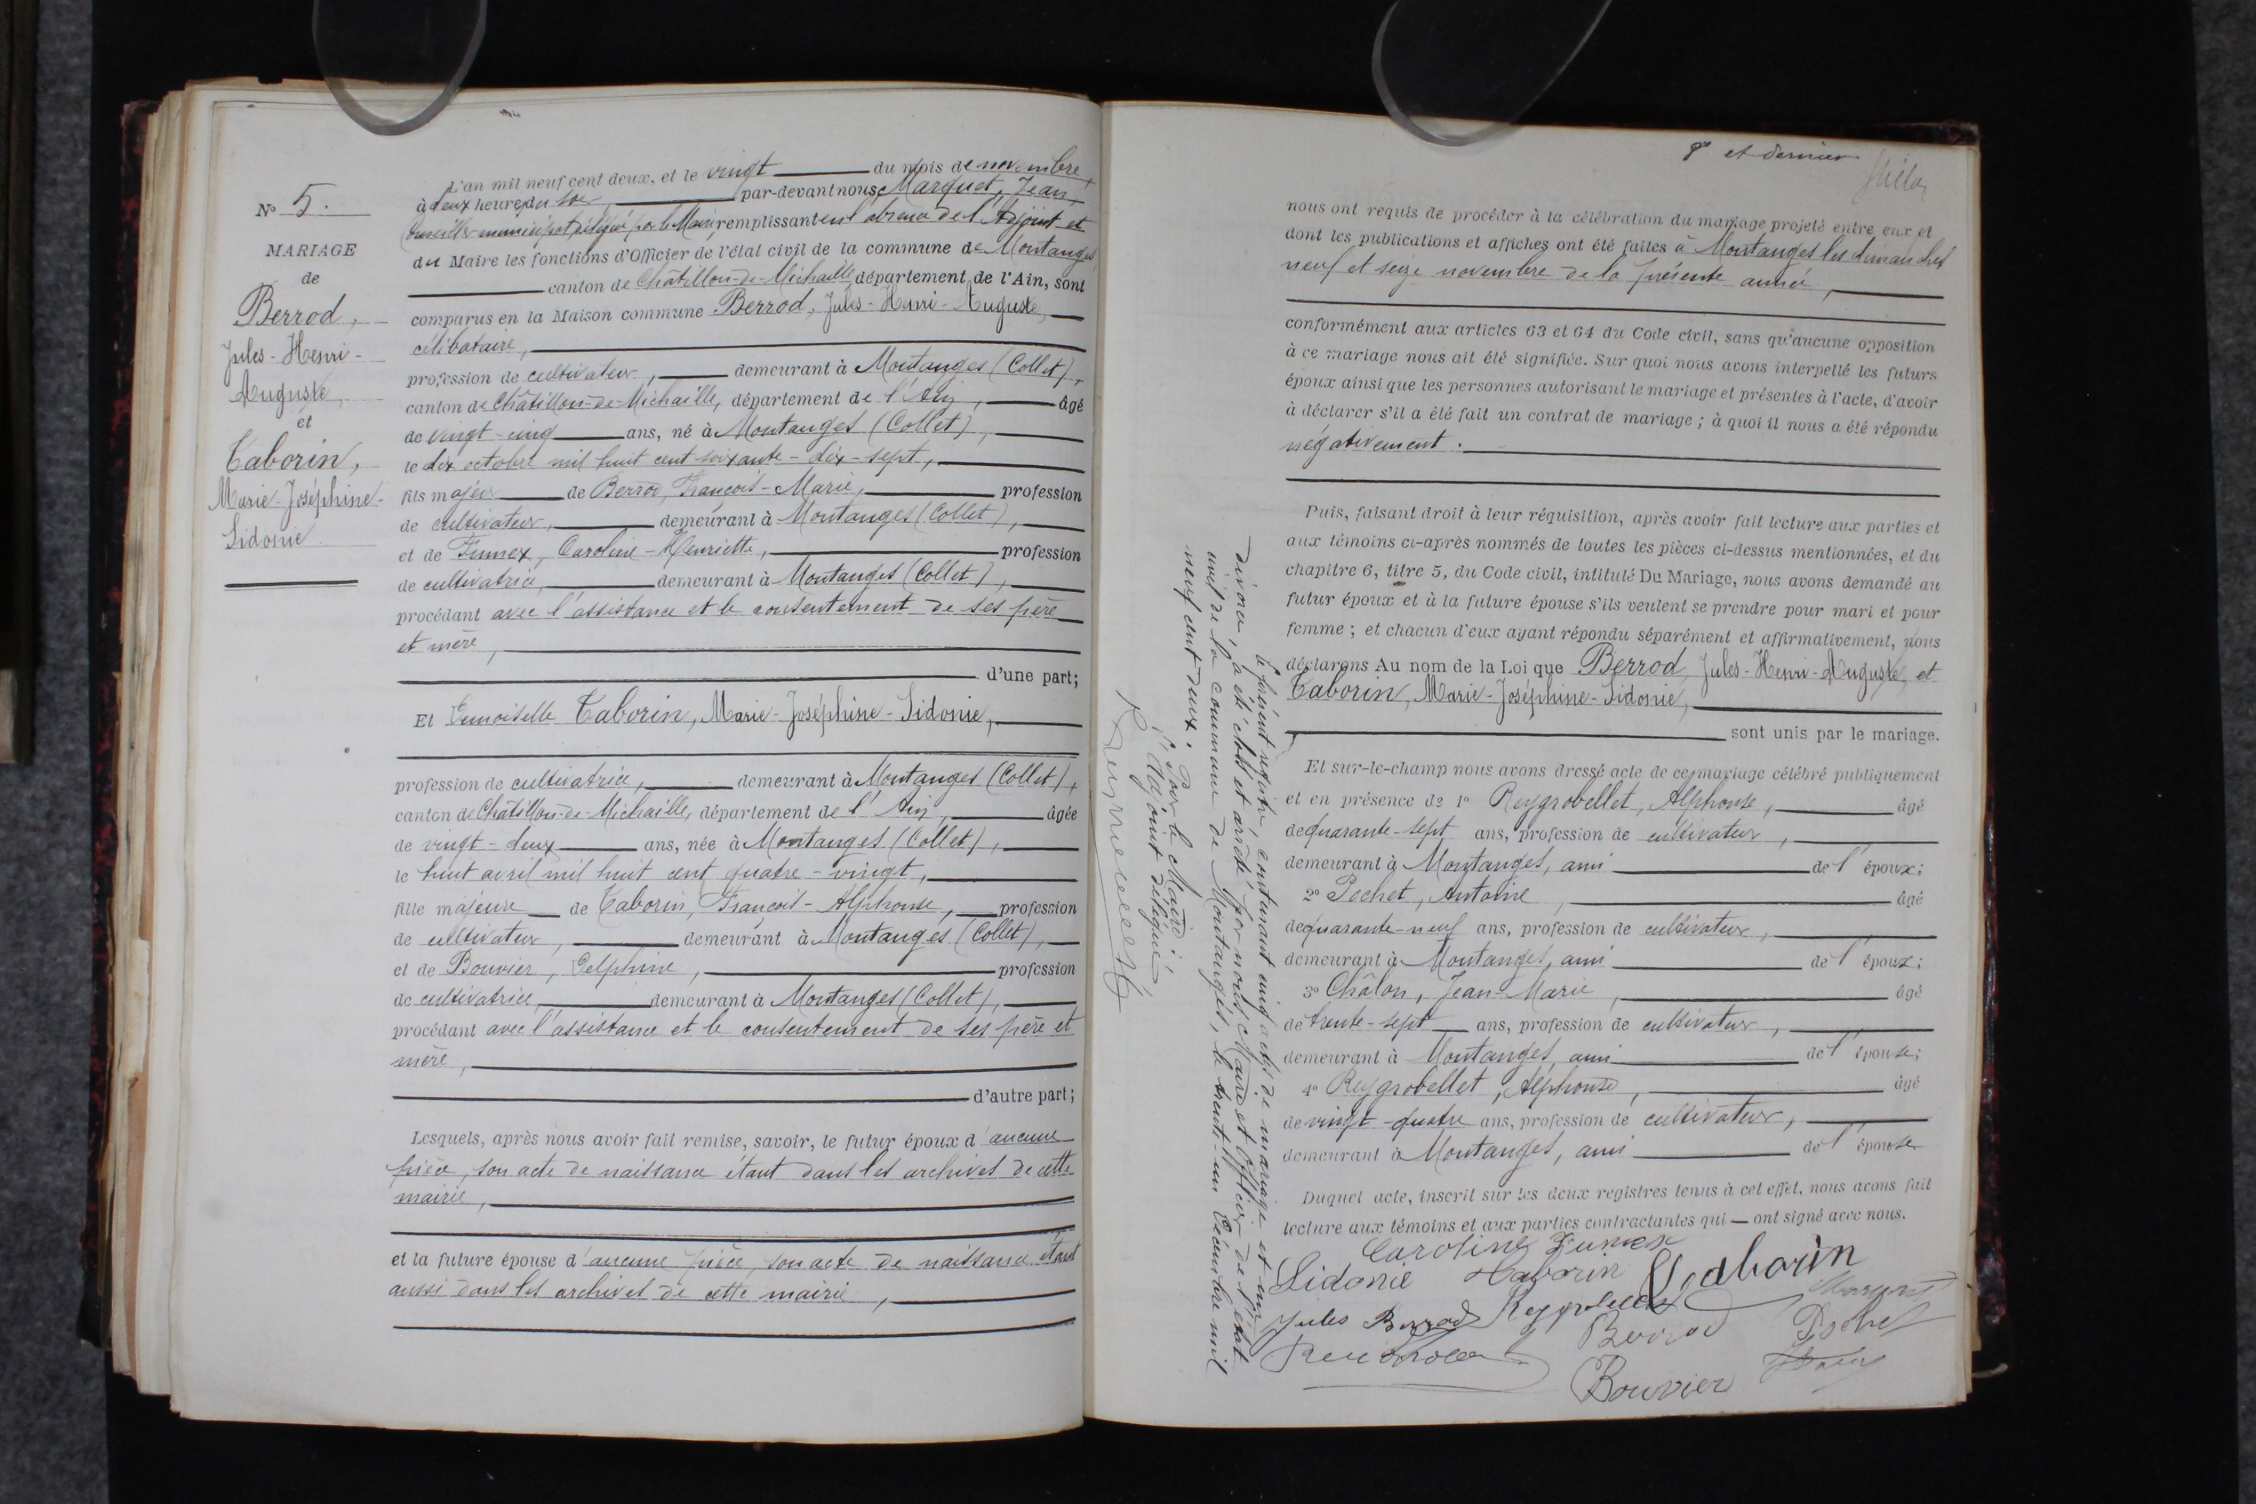 N° 5.
MARIAGE
de
Berrod,
Jules-Henri-
Auguste,
et
Taborin,
Marie-Joséphine-
Sidonie
L'an mil neuf cent deux, et le vingt du mois de novembre,
à deux heures du soir, par-devant nous Marquet, Jean,
Conseiller municipal, délégué par le Maire, remplissant en l'absence de l'Adjoint et
du Maire les fonctions d'Officier de l'état civil de la commune de Montanges
canton de Châtillon-de-Michaille, département de l'Ain, sont
comparus en la Maison commune Berrod, Jules-Henri-Auguste,
célibataire,
profession de cultivateur, demeurant à Montanges (Collet),
canton de Châtillon-de-Michaille, département de l'Ain, âgé
de vingt-cinq ans, né à Montanges (Collet),
le dix octobre mil huit cent soixante-dix-sept,
fils majeur de Berrod, François-Marie, profession
de cultivateur, demeurant à Montanges (Collet),
et de Fumex, Caroline-Henriette, profession
de cultivatrice, demeurant à Montanges (Collet),
procédant avec l'assistance et le consentement de ses père
et mère,
d'une part;
Et Demoiselle Taborin, Marie-Joséphine-Sidonie,
profession de cultivatrice, demeurant à Montanges (Collet),
canton de Châtillon-de-Michaille, département de l'Ain, âgée
de vingt-deux ans, née à Montanges (Collet),
le huit avril mil huit cent quatre-vingt,
fille majeure de Taborin, François-Alphonse, profession
de cultivateur, demeurant à Montanges (Collet),
et de Bouvier, Delphine, profession
de cultivatrice, demeurant à Montanges (Collet),
procédant avec l'assistance et le consentement de ses père et
mère,
d'autre part;
Lesquels, après nous avoir fait remise, savoir, le futur époux d'aucune
pièce, son acte de naissance étant dans les archives de cette
mairie,
et la future épouse d'aucune pièce, son acte de naissance étant
aussi dans les archives de cette mairie,
8e et dernier
nous ont requis de procéder à la célébration du mariage projeté entre eux et
dont les publications et affiches ont été faites à Montanges les dimanches
neuf et seize novembre de la présente année,
conformément aux articles 63 et 64 du Code civil, sans qu'aucune opposition
à ce mariage nous ait été signifiée. Sur quoi nous avons interpellé les futurs
époux ainsi que les personnes autorisant le mariage et présentes à l'acte, d'avoir
à déclarer s'il a été fait un contrat de mariage; à quoi il nous a été répondu
négativement.
Puis, faisant droit à leur réquisition, après avoir fait lecture aux parties et
aux témoins ci-après nommés de toutes les pièces ci-dessus mentionnées, et du
chapitre 6, titre 5, du Code civil, intitulé Du Mariage, nous avons demandé au
futur époux et à la future épouse s'ils veulent se prendre pour mari et pour
femme; et chacun d'eux ayant répondu séparément et affirmativement, nous
déclarons Au nom de la Loi que Berrod, Jules-Henri-Auguste, et
Taborin, Marie-Joséphine-Sidonie,
sont unis par le mariage.
Et sur-le-champ nous avons dressé acte de ce mariage célébré publiquement
et en présence de 1° Reygrobellet, Alphonse, âgé
de quarante-sept ans, profession de cultivateur,
demeurant à Montanges, ami de l'époux;
2° Pochet, Antoine, âgé
de quarante-neuf ans, profession de cultivateur,
demeurant à Montanges, ami de l'époux;
3° Châlon, Jean-Marie, âgé
de trente-sept ans, profession de cultivateur,
demeurant à Montanges, ami de l'épouse;
4° Reygrobellet, Alphonse, âgé
de vingt-quatre ans, profession de cultivateur,
demeurant à Montanges, ami de l'épouse
Duquel acte, inscrit sur les deux registres tenus à cet effet, nous avons fait
lecture aux témoins et aux parties contractantes qui ont signé avec nous.
Caroline Fumex
Sidonie Taborin Taborin
Marquet
Jules Berrod Reygrobellet
Berrod Pochet
Bouvier
Le présent registre, contenant cinq actes de mariage et un
divorce, a été clos et arrêté par nous, Maire et Officier de l'état
civil de la commune de Montanges, le trente-un Décembre mil
neuf cent deux.
Pour le Maire:
l'Adjoint délégué